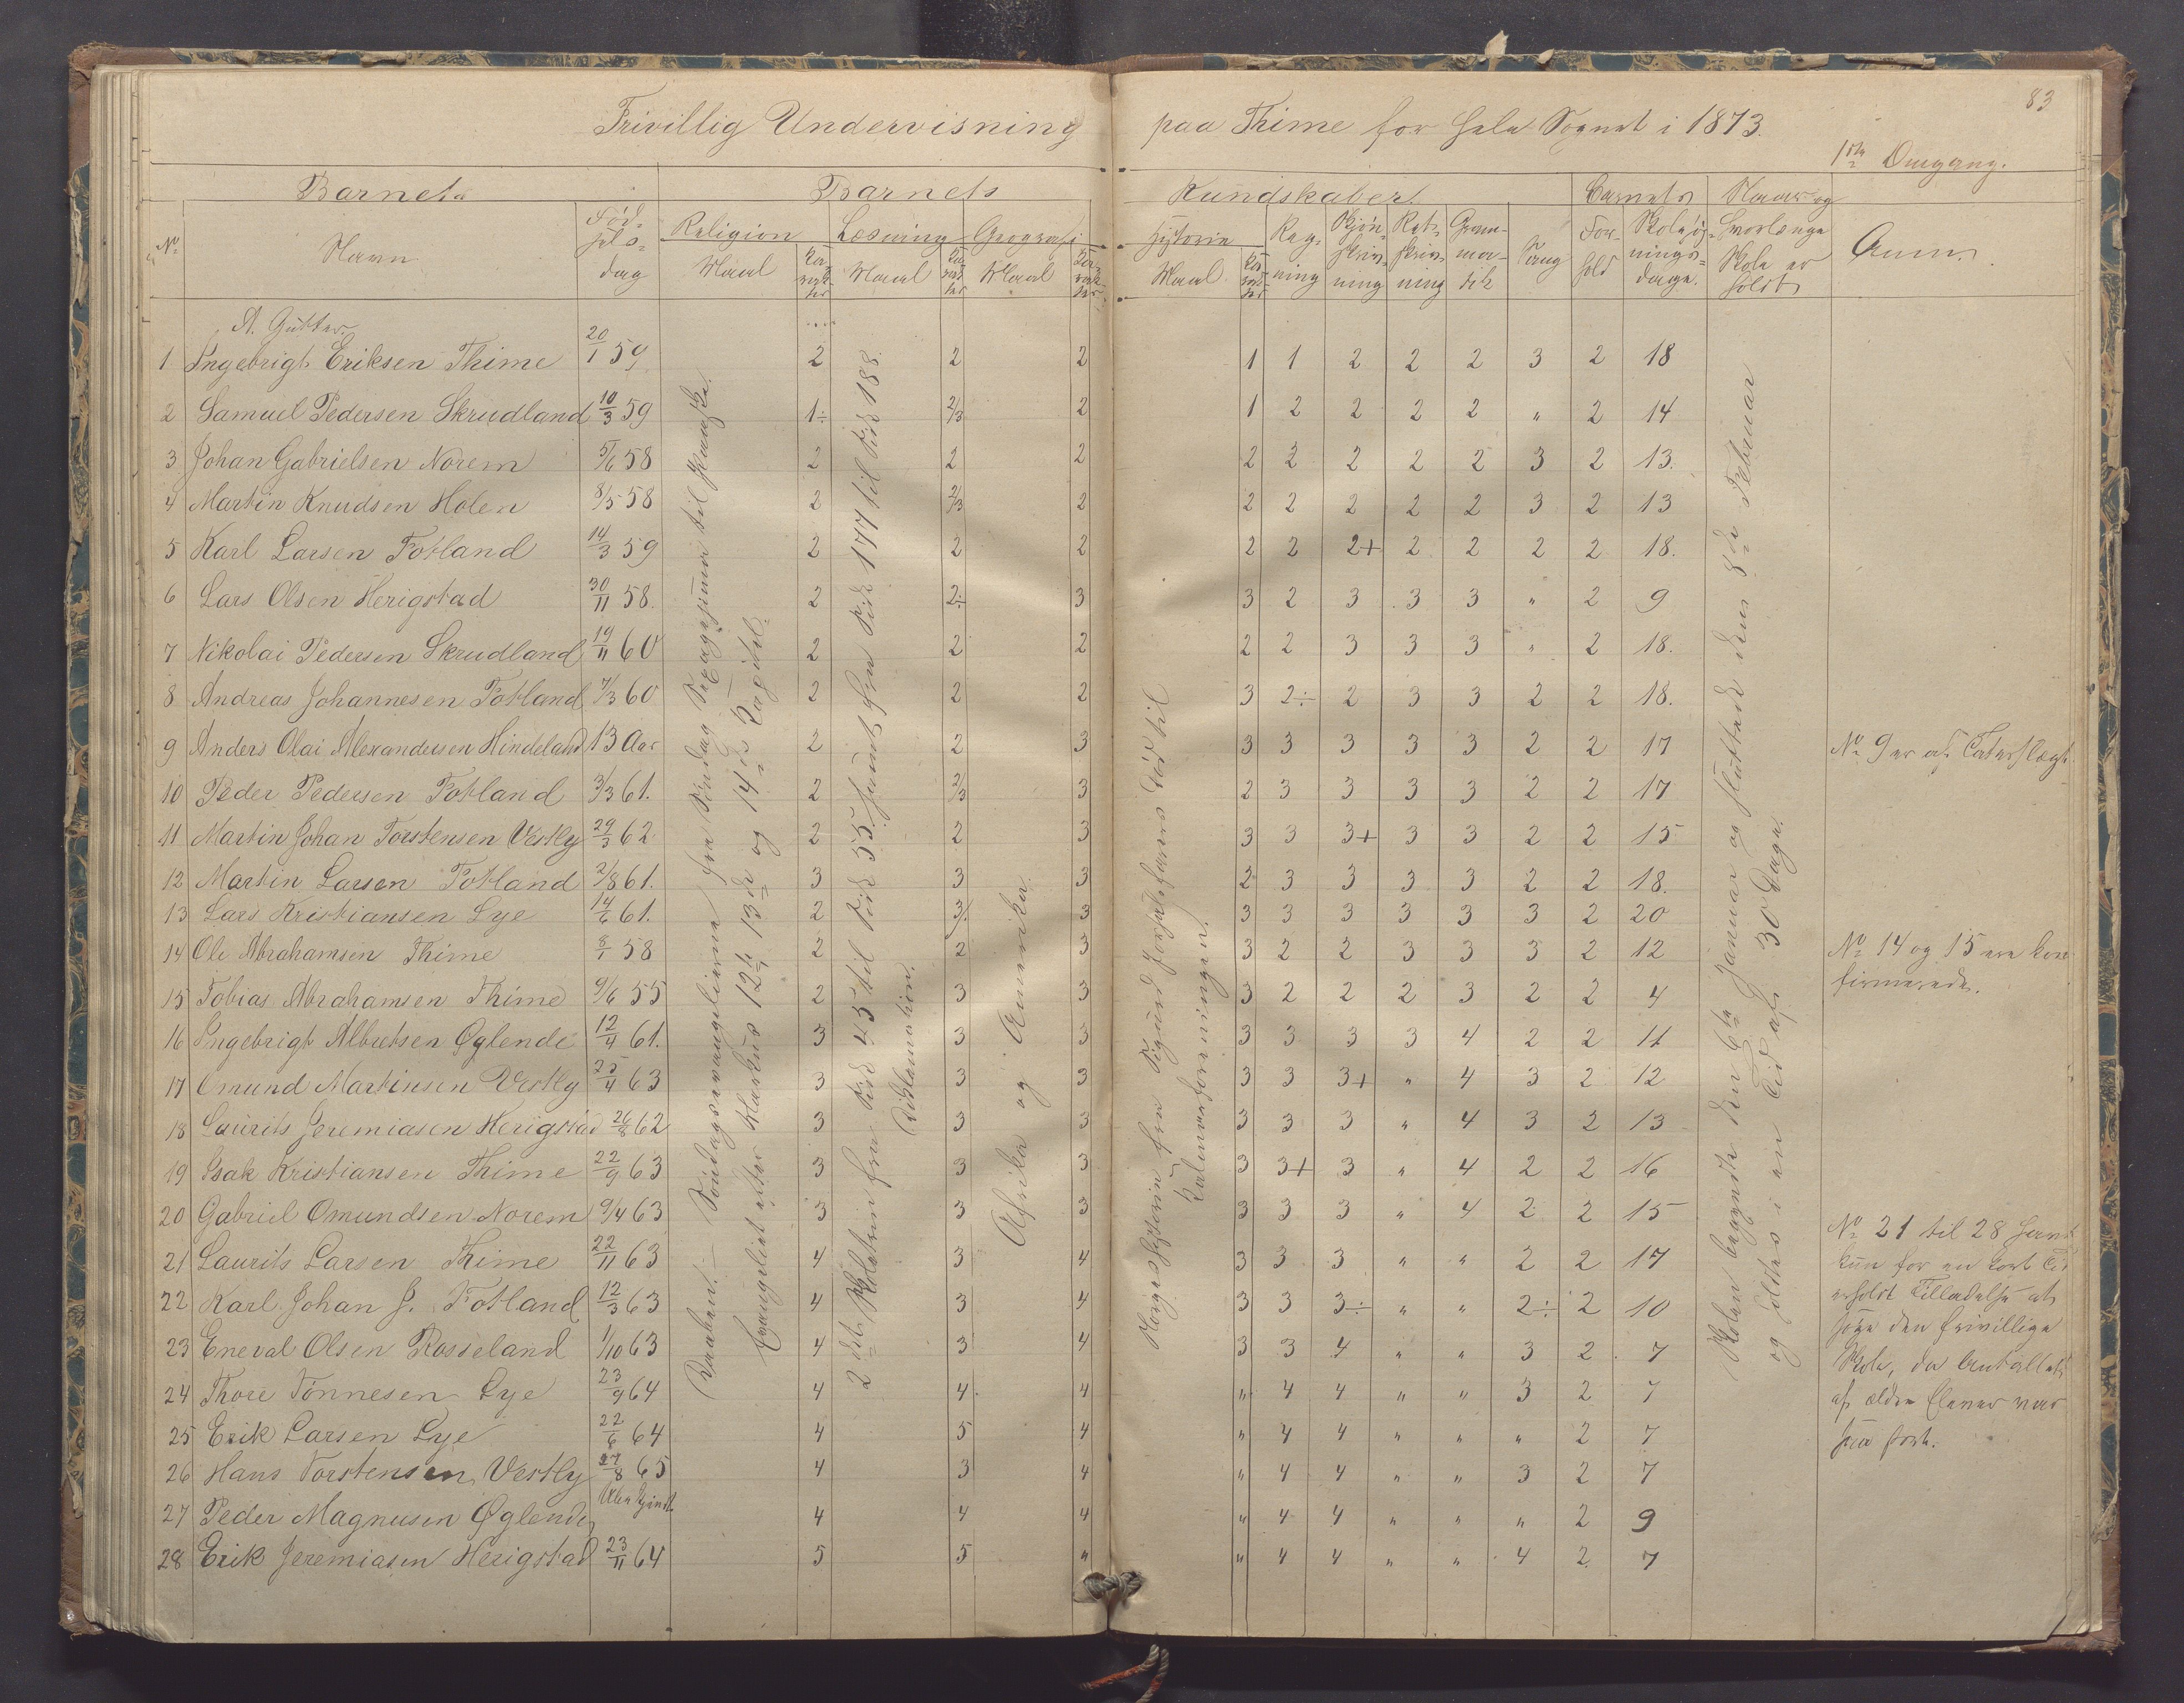 83
Frivillig Undervisning paa Thime for hele Sognet i 1873.
1ste Omgang.
Barnets Barnets Kundskaber. Barnets Naar og
No Navn Fødselsdag Religion Læsning Geografi Historie Regning Skjønskrivning Retskrivning Grammatik Sang Forhold Skolesøgningsdage hvorlænge Skole er holdt Anm.
Maal Karakter Maal Karakter Maal Karakter Maal Karakter
A. Gutter.
1 Ingebrigt Eriksen Thime 20/1 59 2 2 2 1 1 2 2 2 3 2 18
2 Samuel Pedersen Skrudland 10/3 59 1÷ 2/3 2 1 2 2 2 2 " 2 14
3 Johan Gabrielsen Norem 5/6 58 2 2 2 2 2 2 2 2 3 2 13.
4 Martin Knudsen Holen 8/5 58 2 2/3 2 2 2 2 2 2 3 2 13
5 Karl Larsen Fotland 14/3 59 2 2 2 2 2 2+ 2 2 2 2 18.
6 Lars Olsen Herigstad 30/11 58. 2 2÷ 3 3 2 3 3 3 " 2 9
7 Nikolai Pedersen Skrudland 19/11 60 2 2 2 2 2 3 3 3 " 2 18.
8 Andreas Johannesen Fotland 7/3 60 2 2 2 3 2÷ 2 3 3 2 2 18.
9 Anders Olai Alexandersen Hindeland 13 Aar 2 2 3 3 3 3 3 3 2 2 17 No 9 er af Taterslægt.
10 Peder Pedersen Fotland 3/3 61. 2 2/3 3 2 3 3 3 3 2 2 17
11 Martin Johan Torstensen Vestly 29/3 62 2 2 3 3 3 3+ 3 3 2 2 15
12 Martin Larsen Fotland 2/8 61. 3 3 3 2 3 3 3 3 2 2 18.
13 Lars Kristiansen Lye 14/6 61. 2 3 3 3 3 3 3 3 3 2 20
14 Ole Abrahamsen Thime 8/1 58 2 2 3 3 2 2 3 3 3 2 12 No 14 og 15 ere kon-
15 Tobias Abrahamsen Thime 9/6 55 2 3 3 3 2 2 2 3 2 2 4 firmerede.
16 Ingebrigt Albretsen Øglende 12/4 61. 3 3 3 3 3 3 3 4 2 2 11
17 Omund Martinsen Vestly 25/4 63 3 3 3 3 3 3+ " 4 3 2 12
18 Laurits Jeremiasen Herigstad 26/8 62 3 3 3 3 3 3 " 4 3 2 13
19 Isak Kristiansen Thime 22/9 63 3 3 3 3 3+ 3 " 4 2 2 16
20 Gabriel Omundsen Norem 9/4 63 3 3 3 3 3 3 " 4 2 2 15
21 Laurits Larsen Thime 22/11 63 4 3 4 3 3 3 " " 2 2 17
22 Karl Johan J. Fotland 12/3 63 4 3 4 3 3 3÷ " " 2÷ 2 10
23 Eneval Olsen Rosseland 1/10 63 4 3 4 3 3 4 " " 3 2 7
24 Thore Tønnesen Lye 23/9 64 4 4 4 " 4 4 " " 3 2 7
25 Erik Larsen Lye 22/6 64 4 5 4 " 4 4 " " " 2 7
26 Hans Torstensen Vestly 27/8 65 4 3 4 " 4 4 " " 3 2 7
27 Peder Magnusen Øglende Ubekjendt 4 4 4 " 4 4 " " " 2 9
28 Erik Jeremiasen Herigstad 23/11 64 5 5 " " 4 4 " " 4 2 7
No 21 til 28 have
kun for en kort Tid
erholdt Tilladelse at
søge den frivillige
Skole, da Antallet
af ældre Elever var
saa stort.
Søndagsevangelierne fra Søndag Septuagesima til Paaske.
Evangeliet efter Markus 12te, 13de og 14de Kapitel.
2det Skoletrin fra Side 45 til Side 55, samt fra Side 177 til Side 188.
Deklamation.
Afrika og Amerika.
Norges Historie fra Sigurd Jorsalefarers Død til
Kalmarforeningen.
Skolen begyndte den 6te Januar og sluttede den 8de Februar
og holdtes i en Tid af 30 Dage.